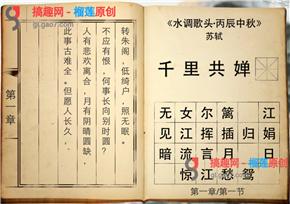 搞趣网-榴莲原创
gl.gao7.com
转朱阁，低绮户，照无眠。
不应有恨，何事长向别时圆？
人有悲欢离合，月有阴晴圆缺，
此事古难全。但愿人长久，
第一章
《水调歌头·丙辰中秋》
苏轼
千里共婵
无女尔篱江
见江挥插归娟
暗流言月日
惊江愁鸳
第一章/第一节
搞趣网-榴莲原创
gl.gao7.com